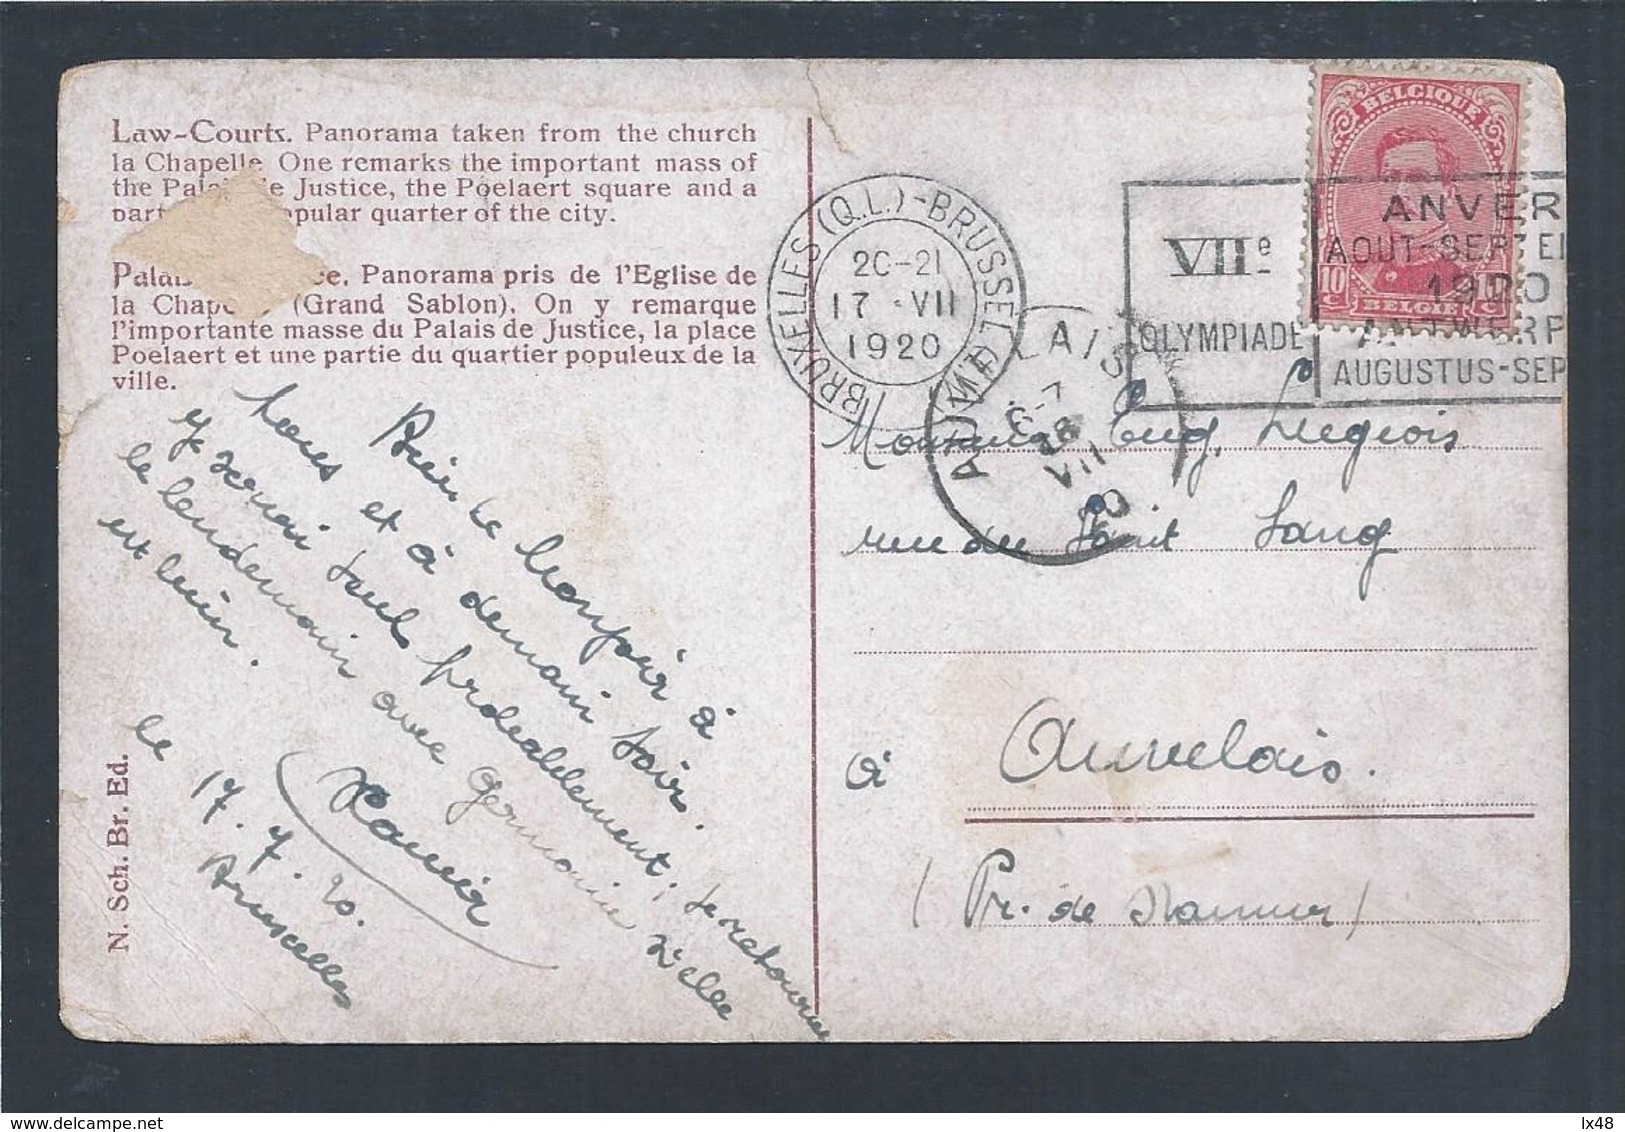 Law-Courts. Panorama taken from the church
la Chapelle. One remarks the important mass of
the Palais de Justice, the Poelaert square and a
part popular quarter of the city.
Palais ce. Panorama pris de l'Eglise de
la Chapelle (Grand Sablon). On y remarque
l'importante masse du Palais de Justice, la place
Poelaert et une partie du quartier populeux de la
ville.
N. Sch. Br. Ed.
Bien le bonjour à
tous et à demain soir.
Je serai seul probablement, je retourne
le lendemain avec Germaine si elle
est bien.
le 17.7.20.
Bruxelles
Xavier
BRUXELLES (Q.L.)-BRUSSEL (W.L.)
20-21
17 VII
1920
VIIe
OLYMPIADE
ANVER
AOUT-SEPTEM
1920
ANTWERP
AUGUSTUS-SEP
BELGIQUE
10 c 10 c
BELGIE
AUVELAIS
6-7
18
VII
20
Monsieur Liegeois
rue du Saint Sang
à Auvelais.
(Pr. de Namur)
lx48